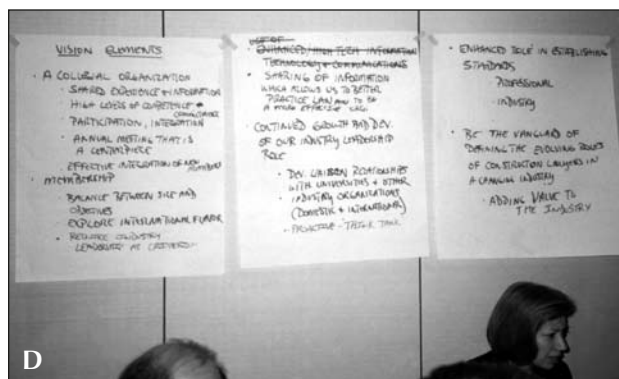 VISION ELEMENTS
• A COLLEGIAL ORGANIZATION
• SHARED EXPERIENCE & INFORMATION
• HIGH LEVELS OF COMPETENCE &
COMMITMENT
PARTICIPATION, INTEGRATION
• ANNUAL MEETING THAT IS
A CENTERPIECE
• EFFECTIVE INTEGRATION OF NEW MEMBERS
• MEMBERSHIP
• BALANCE BETWEEN SIZE AND
OBJECTIVES
EXPLORE INTERNATIONAL FLAVOR
• INDUSTRY
LEADERSHIP AS CRITERIA
USE OF
• ENHANCED/HIGH TECH INFORMATION
TECHNOLOGY & COMMUNICATIONS
• SHARING OF INFORMATION
WHICH ALLOWS US TO BETTER
PRACTICE LAW AND TO BE
A MORE EFFECTIVE
• CONTINUED GROWTH AND DEV.
OF OUR INDUSTRY LEADERSHIP
ROLE
• DEV. LIAISON RELATIONSHIPS
WITH UNIVERSITIES & OTHER
• INDUSTRY ORGANIZATIONS
(DOMESTIC & INTERNATIONAL)
• PROACTIVE - THINK TANK
• ENHANCED ROLE IN ESTABLISHING
STANDARDS
PROFESSIONAL
INDUSTRY
• BE THE VANGUARD OF
DEFINING THE EVOLVING ROLES
OF CONSTRUCTION LAWYERS IN
A CHANGING INDUSTRY
• ADDING VALUE TO
THE INDUSTRY
D